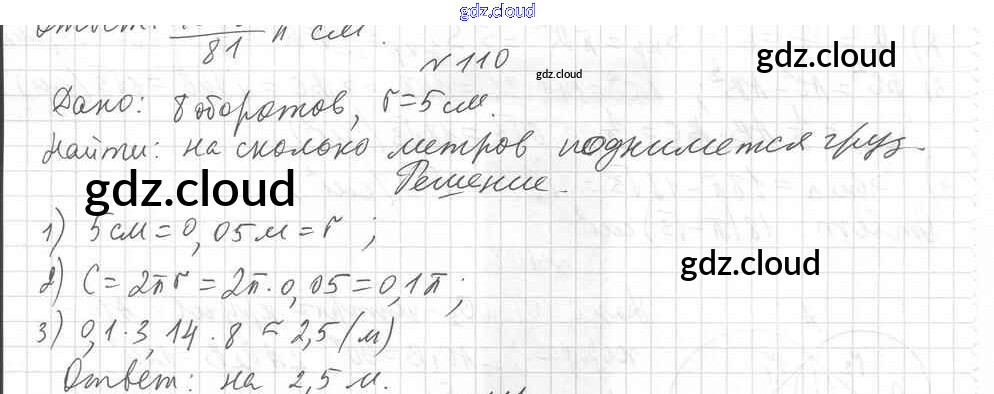 gdz.cloud
Ответ: /81 π см.
gdz.cloud
№ 110
gdz.cloud
Дано: 8 оборотов, r=5 см.
Найти: на сколько метров поднимется груз.
gdz.cloud
Решение.
1) 5 см = 0,05 м = r ;
gdz.cloud
2) C = 2πr = 2π·0,05 = 0,1π ;
3) 0,1·3,14·8 ≈ 2,5 (м)
Ответ: на 2,5 м.